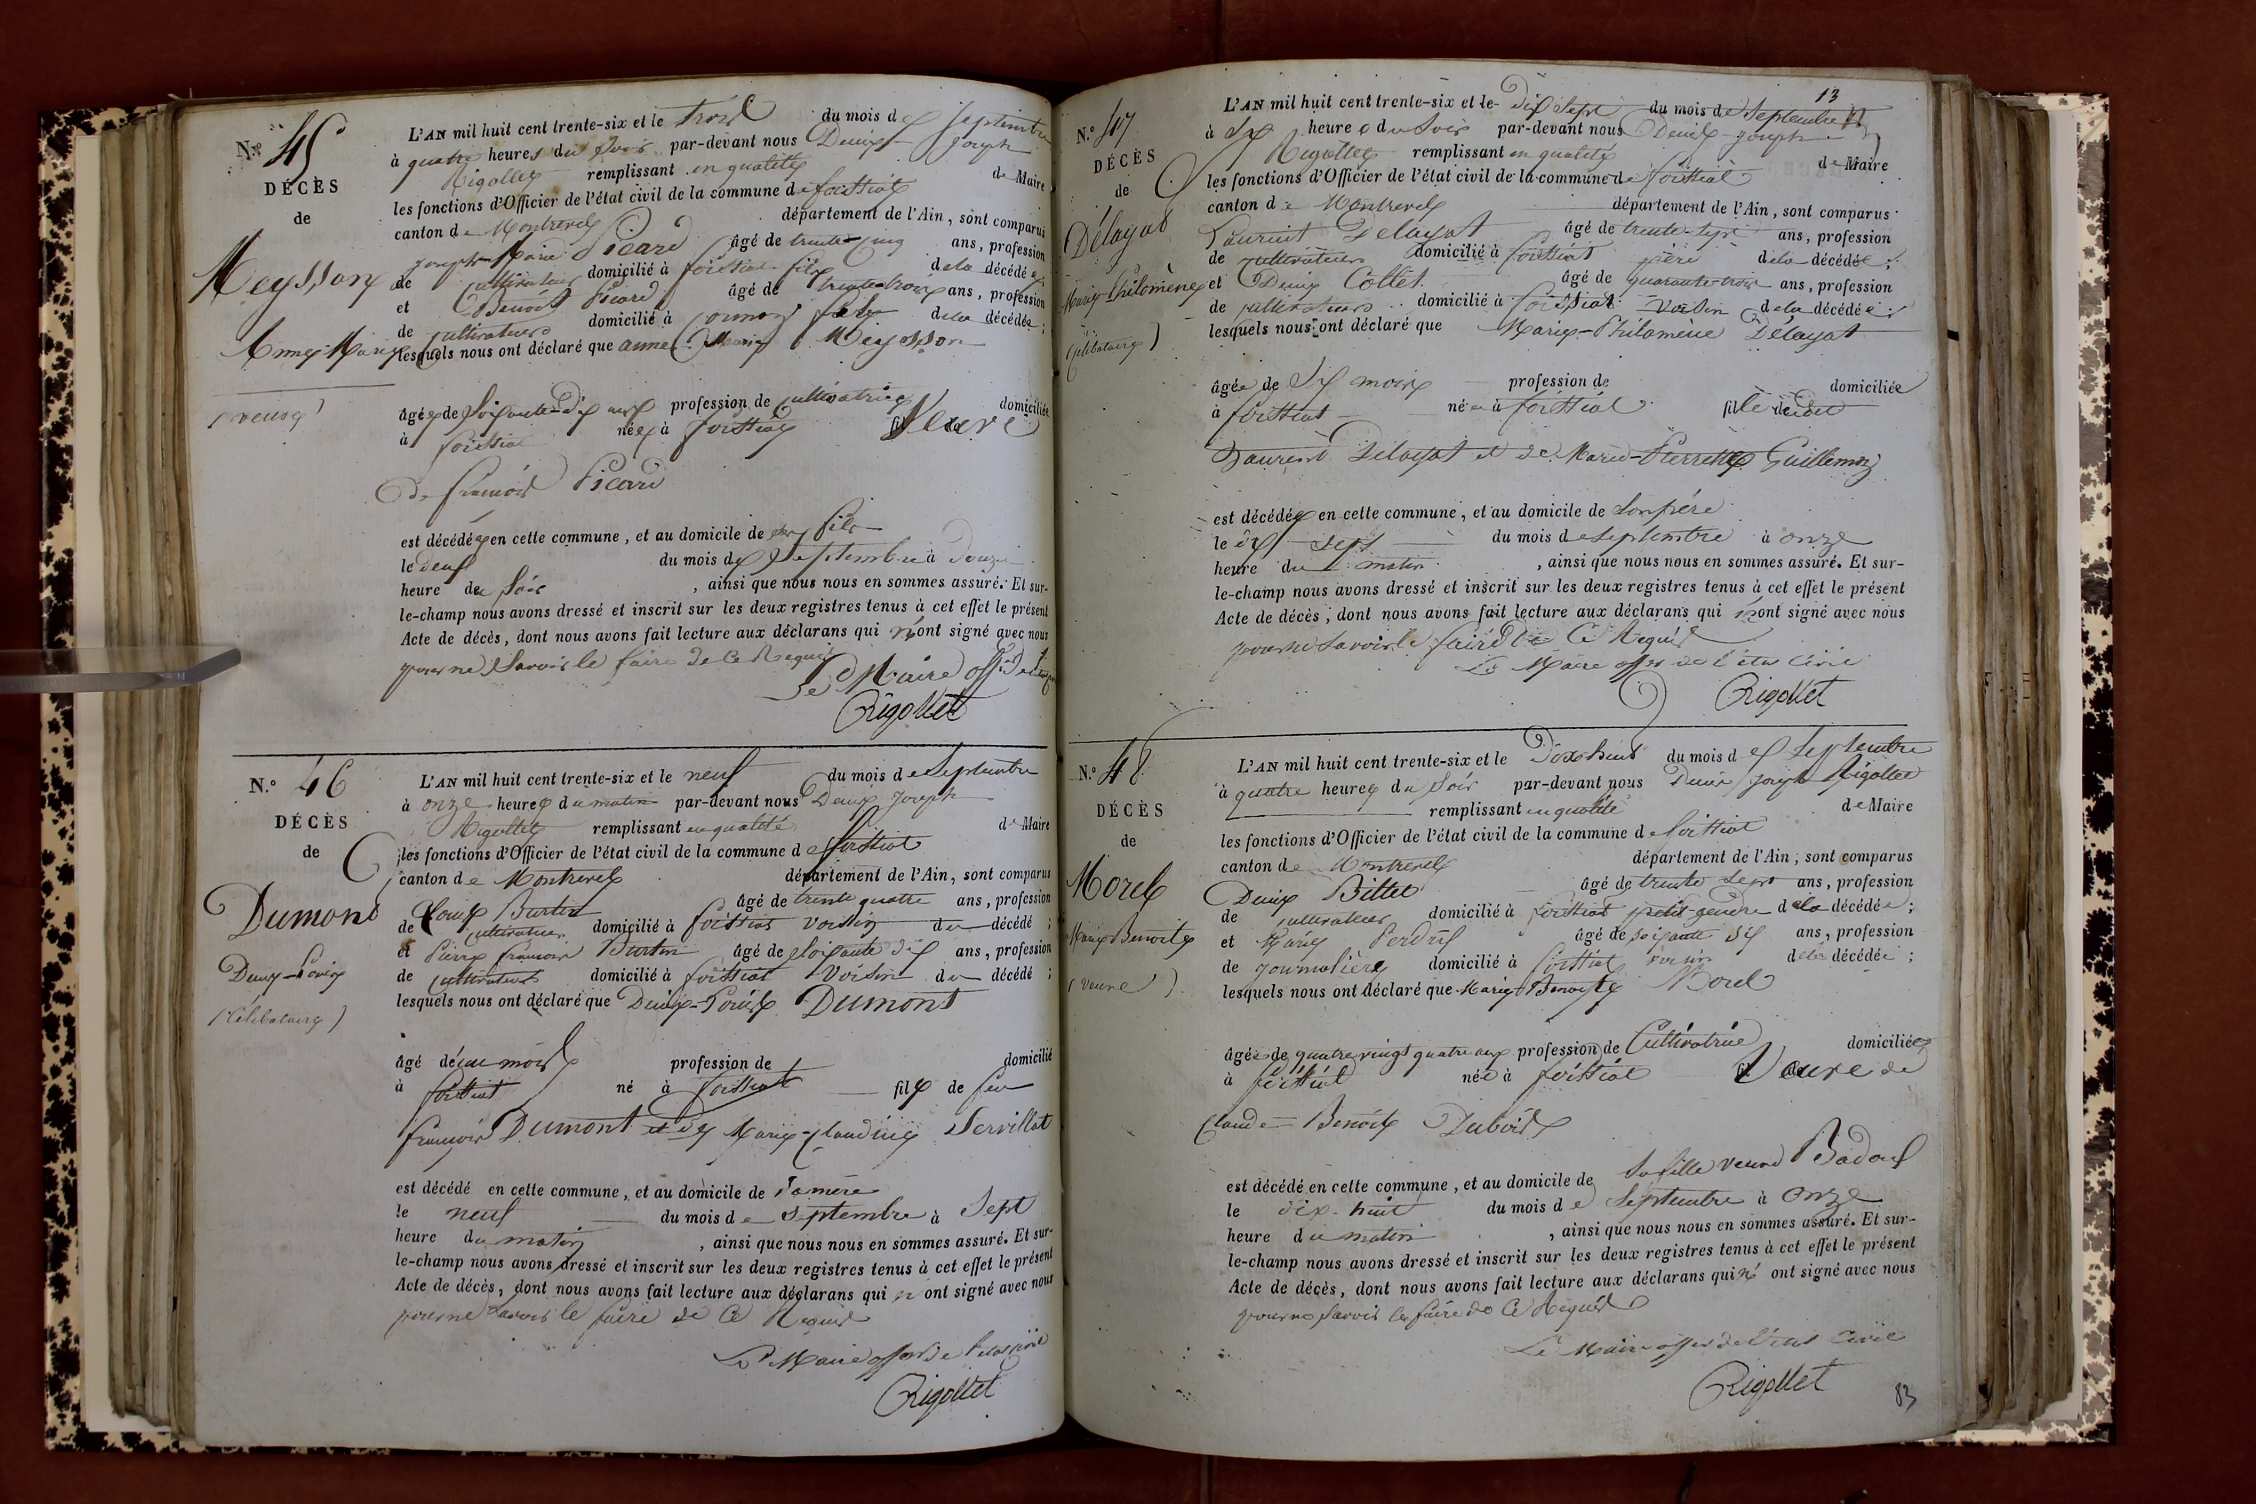 N.º 45
DÉCÈS
de
Meysson
Anne-Marie
(veuve)
L'AN mil huit cent trente-six et le trois du mois de Septembre
à quatre heures du Soir par-devant nous Denis Joseph
Rigollet remplissant en qualité de Maire
les fonctions d'Officier de l'état civil de la commune de foissiat
canton de Montrevel département de l'Ain, sont comparus
Joseph-Marie Picard âgé de trente-cinq ans, profession
de cultivateur domicilié à foissiat fils de la décédée;
et Benoit Picard âgé de trente-trois ans, profession
de cultivateur domicilié à fils de la décédée;
lesquels nous ont déclaré que anne Marie Meysson
âgée de Soixante-dix ans profession de cultivatrice domiciliée
à foissiat née à foissiat Veuve
de francois Picard
est décédée en cette commune, et au domicile de son fils
le deux du mois de Septembre à Douze
heure du Soir, ainsi que nous nous en sommes assuré. Et sur-
le-champ nous avons dressé et inscrit sur les deux registres tenus à cet effet le présent
Acte de décès, dont nous avons fait lecture aux déclarans qui n'ont signé avec nous
pour ne Savoir le faire de Ce Requis
Le Maire off. de
Rigollet
N.º 46
DÉCÈS
de
Dumont
Denis-Louis
(Célibataire)
L'AN mil huit cent trente-six et le neuf du mois de Septembre
à onze heures du matin par-devant nous Denis Joseph
Rigollet remplissant en qualité de Maire
les fonctions d'Officier de l'état civil de la commune de foissiat
canton de Montrevel département de l'Ain, sont comparus
Louis Burtin âgé de trente quatre ans, profession
de cultivateur domicilié à foissiat voisin du décédé;
et Pierre francois Burtin âgé de Soixante dix ans, profession
de cultivateur domicilié à foissiat Voisin du décédé;
lesquels nous ont déclaré que Denis-Louis Dumont
âgé de un mois profession de domicilié
à foissiat né à foissiat fils de feu
francois Dumont et de Marie-Claudine Servillat
est décédé en cette commune, et au domicile de Sa mère
le neuf du mois de Septembre à Sept
heure du matin, ainsi que nous nous en sommes assuré. Et sur-
le-champ nous avons dressé et inscrit sur les deux registres tenus à cet effet le présent
Acte de décès, dont nous avons fait lecture aux déclarans qui n'ont signé avec nous
pour ne Savoir le faire de Ce Requis
Le Maire offer de l'etat civil
Rigollet
13
N.º 47
DÉCÈS
de
Délayat
Marie-Philomène
(célibataire)
L'AN mil huit cent trente-six et le Dix Sept du mois de Septembre
à Six heures du Soir par-devant nous Denis Joseph
Rigollet remplissant en qualité de Maire
les fonctions d'Officier de l'état civil de la commune de foissiat
canton de Montrevel département de l'Ain, sont comparus
Laurent Delayat âgé de trente-sept ans, profession
de cultivateur domicilié à foissiat père de la décédée;
et Denis Collet âgé de quarante-trois ans, profession
de cultivateur domicilié à foissiat Voisin de la décédée;
lesquels nous ont déclaré que Marie-Philomène Délayat
âgée de Six mois profession de domiciliée
à foissiat née à foissiat fille de
Laurent Delayat et de Marie-Pierrette Guillemoz
est décédée en cette commune, et au domicile de Son père
le dix sept du mois de Septembre à onze
heure du matin, ainsi que nous nous en sommes assuré. Et sur-
le-champ nous avons dressé et inscrit sur les deux registres tenus à cet effet le présent
Acte de décès, dont nous avons fait lecture aux déclarans qui n'ont signé avec nous
pour ne Savoir le faire de Ce Requis
Le Maire offer de l'etat Civil
Rigollet
N.º 48
DÉCÈS
de
Morel
Marie Benoite
(veuve)
L'AN mil huit cent trente-six et le Dix huit du mois de Septembre
à quatre heures du Soir par-devant nous Denis Joseph Rigollet
remplissant en qualité de Maire
les fonctions d'Officier de l'état civil de la commune de foissiat
canton de Montrevel département de l'Ain, sont comparus
Denis Billet âgé de trente Sept ans, profession
de cultivateur domicilié à foissiat petit-gendre de la décédée;
et Marie Perdrix âgé de soixante Six ans, profession
de journalière domicilié à foissiat voisin de la décédée;
lesquels nous ont déclaré que Marie Benoite Morel
âgée de quatre vingt quatre ans profession de Cultivatrice domiciliée
à foissiat née à foissiat Veuve de
Claude Benoit Dubois
est décédé en cette commune, et au domicile de Sa fille veuve Badoux
le dix-huit du mois de Septembre à onze
heure du matin, ainsi que nous nous en sommes assuré. Et sur-
le-champ nous avons dressé et inscrit sur les deux registres tenus à cet effet le présent
Acte de décès, dont nous avons fait lecture aux déclarans qui n'ont signé avec nous
pour ne Savoir le faire de Ce Requis
Le Maire offer de l'etat Civil
Rigollet
83